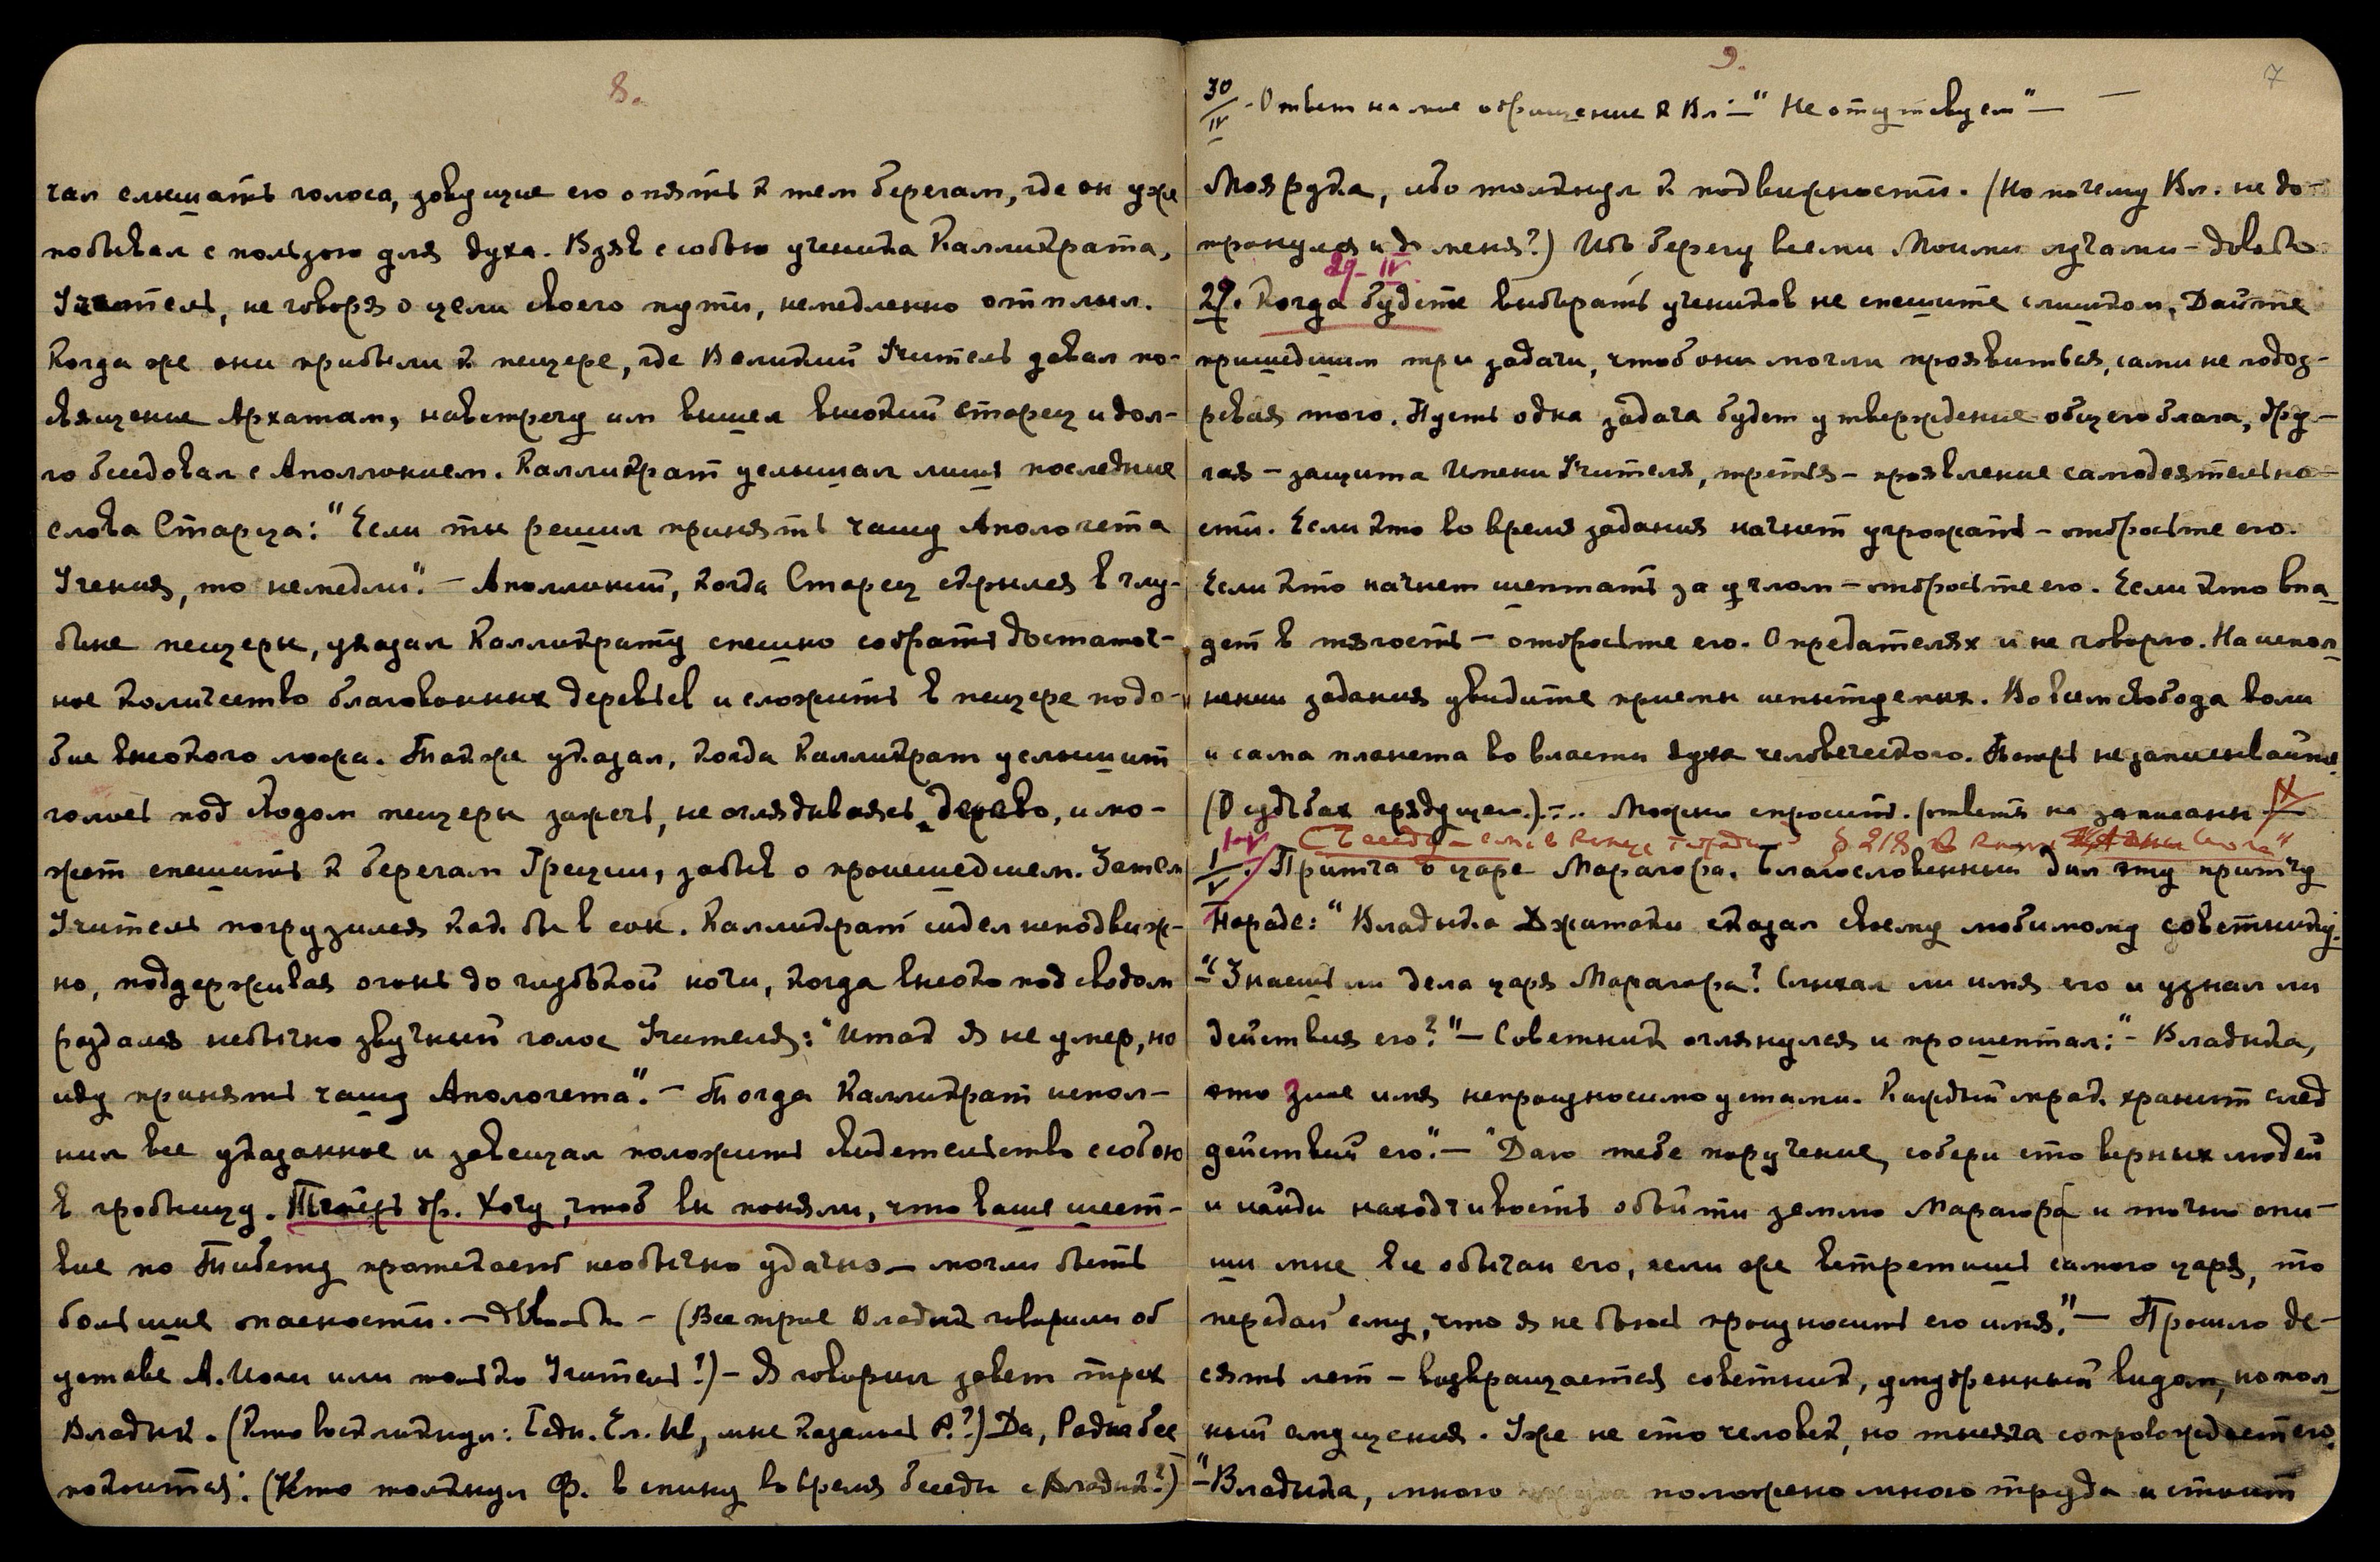 8.
чал слышать голоса, зовущие его опять к тем берегам, где он уже
побывал с пользою для духа. Взяв с собою ученика Калликрата,
Учитель, не говоря о цели своего пути, немедленно отплыл.
Когда же они прибыли к пещере, где Великий Учитель давал по-
священие Архатам, навстречу им вышел высокий старец и дол-
го беседовал с Аполлонием. Калликрат услышал лишь последние
слова Старца: "Если ты решил принять чашу Апологета
Учения, то немедли". — Аполлоний, когда Старец скрылся в глу-
бине пещеры, указал Калликрату спешно собрать достаточ-
ное количество благовонных деревьев и сложить в пещере подо-
бие высокого ложа. Также указал, когда Калликрат услышит
голос под сводом пещеры зажечь, не оглядываясь, дерево, и мо-
жет спешить к берегам Греции, забыв о происшедшем. Затем
Учитель погрузился как бы в сон. Калликрат сидел неподвиж-
но, поддерживая огонь до глубокой ночи, когда высоко под сводом
раздался необычно звучный голос Учителя: "Итак я не умер, но
иду принять чашу Апологета". — Тогда Калликрат испол-
нил все указанное и завещал положить свидетельство с собою
в гробницу. Теперь др. Хочу, чтоб вы поняли, что ваше шест-
вие по Тибету протекает необычно удачно — могли быть
большие опасности. — Довольно — (Все трое Владык говорили об
уставе А. Йоги или только Учитель?) — Я говорил завет трех
Владык. (Кто воскликнул: Бедн. Ел. Ив, мне казалось Р.?) Да, Радна бес
покоится. (Кто толкнул Ф. в спину во время беседы с Владык?)
9.
7
30/IV - Ответ на мое обращение к Вл. — "Не отсутствуем" —
Моя рука, ибо толкнул к подвижности. (Но почему Вл. не до-
пронулся и до меня?) Ибо берегу всеми Моими лучами — довольно
29-IV
29. Когда будете выбирать учеников не спешите слишком. Дайте
пришедшим три задачи, чтоб они могли проявиться, сами не подоз-
ревая того. Пусть одна задача будет утверждение общего блага, дру-
гая — защита Имени Учителя, третья — проявление самодеятельно-
сти. Если кто во время задания начнет угрожать — отбросьте его.
Если кто начнет шептать за углом — отбросьте его. Если кто впа
дет в тягость — отбросьте его. О предателях и не говорю. На испол
нении задания увидите приемы испытуемых. Во всем свобода воли
и сама планета во власти духа человеческого. Теперь не записывайте
(О судьбах грядущего.) — .. Можно спросить. (ответы не записаны
1/V Притча о царе Марагора. Благословенный дал эту притчу
Нараде: "Владыка Джатаки сказал своему любимому советнику:
— "Знаешь ли дела царя Марагора? Слыхал ли имя его и узнал ли
действия его?" — Советник оглянулся и прошептал: "— Владыка,
это злое имя непроизносимо устами. Каждый мрак хранит след
действий его". — "Даю тебе поручение, собери сто верных людей
и найди находчивость обойти землю Марагора и точно опи-
ши мне все обычаи его, если же встретишь самого царя, то
передай ему, что я не боюсь произносить его имя". — Прошло де-
сять лет — возвращается советник, умудренный видом, но пол
ный смущения. Уже не сто человек, но тысяча сопровождает его.
"— Владыка, много положено много труда и стоит